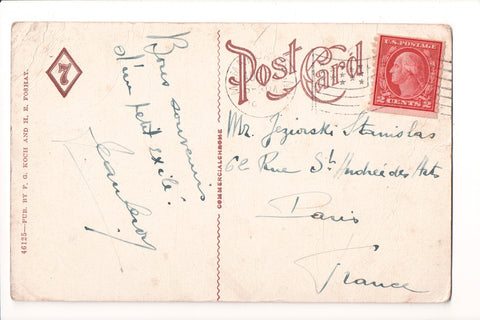 7
Post Card
U.S. POSTAGE
2 CENTS 2
Bons souvenirs
d'un petit exilé.
46125—PUB. BY F. G. KOCH AND H. E. FOSHAT.
COMMERCIALCHROME
Mr. Jeziorski Stanislas
62 Rue St André des Arts
Paris
France